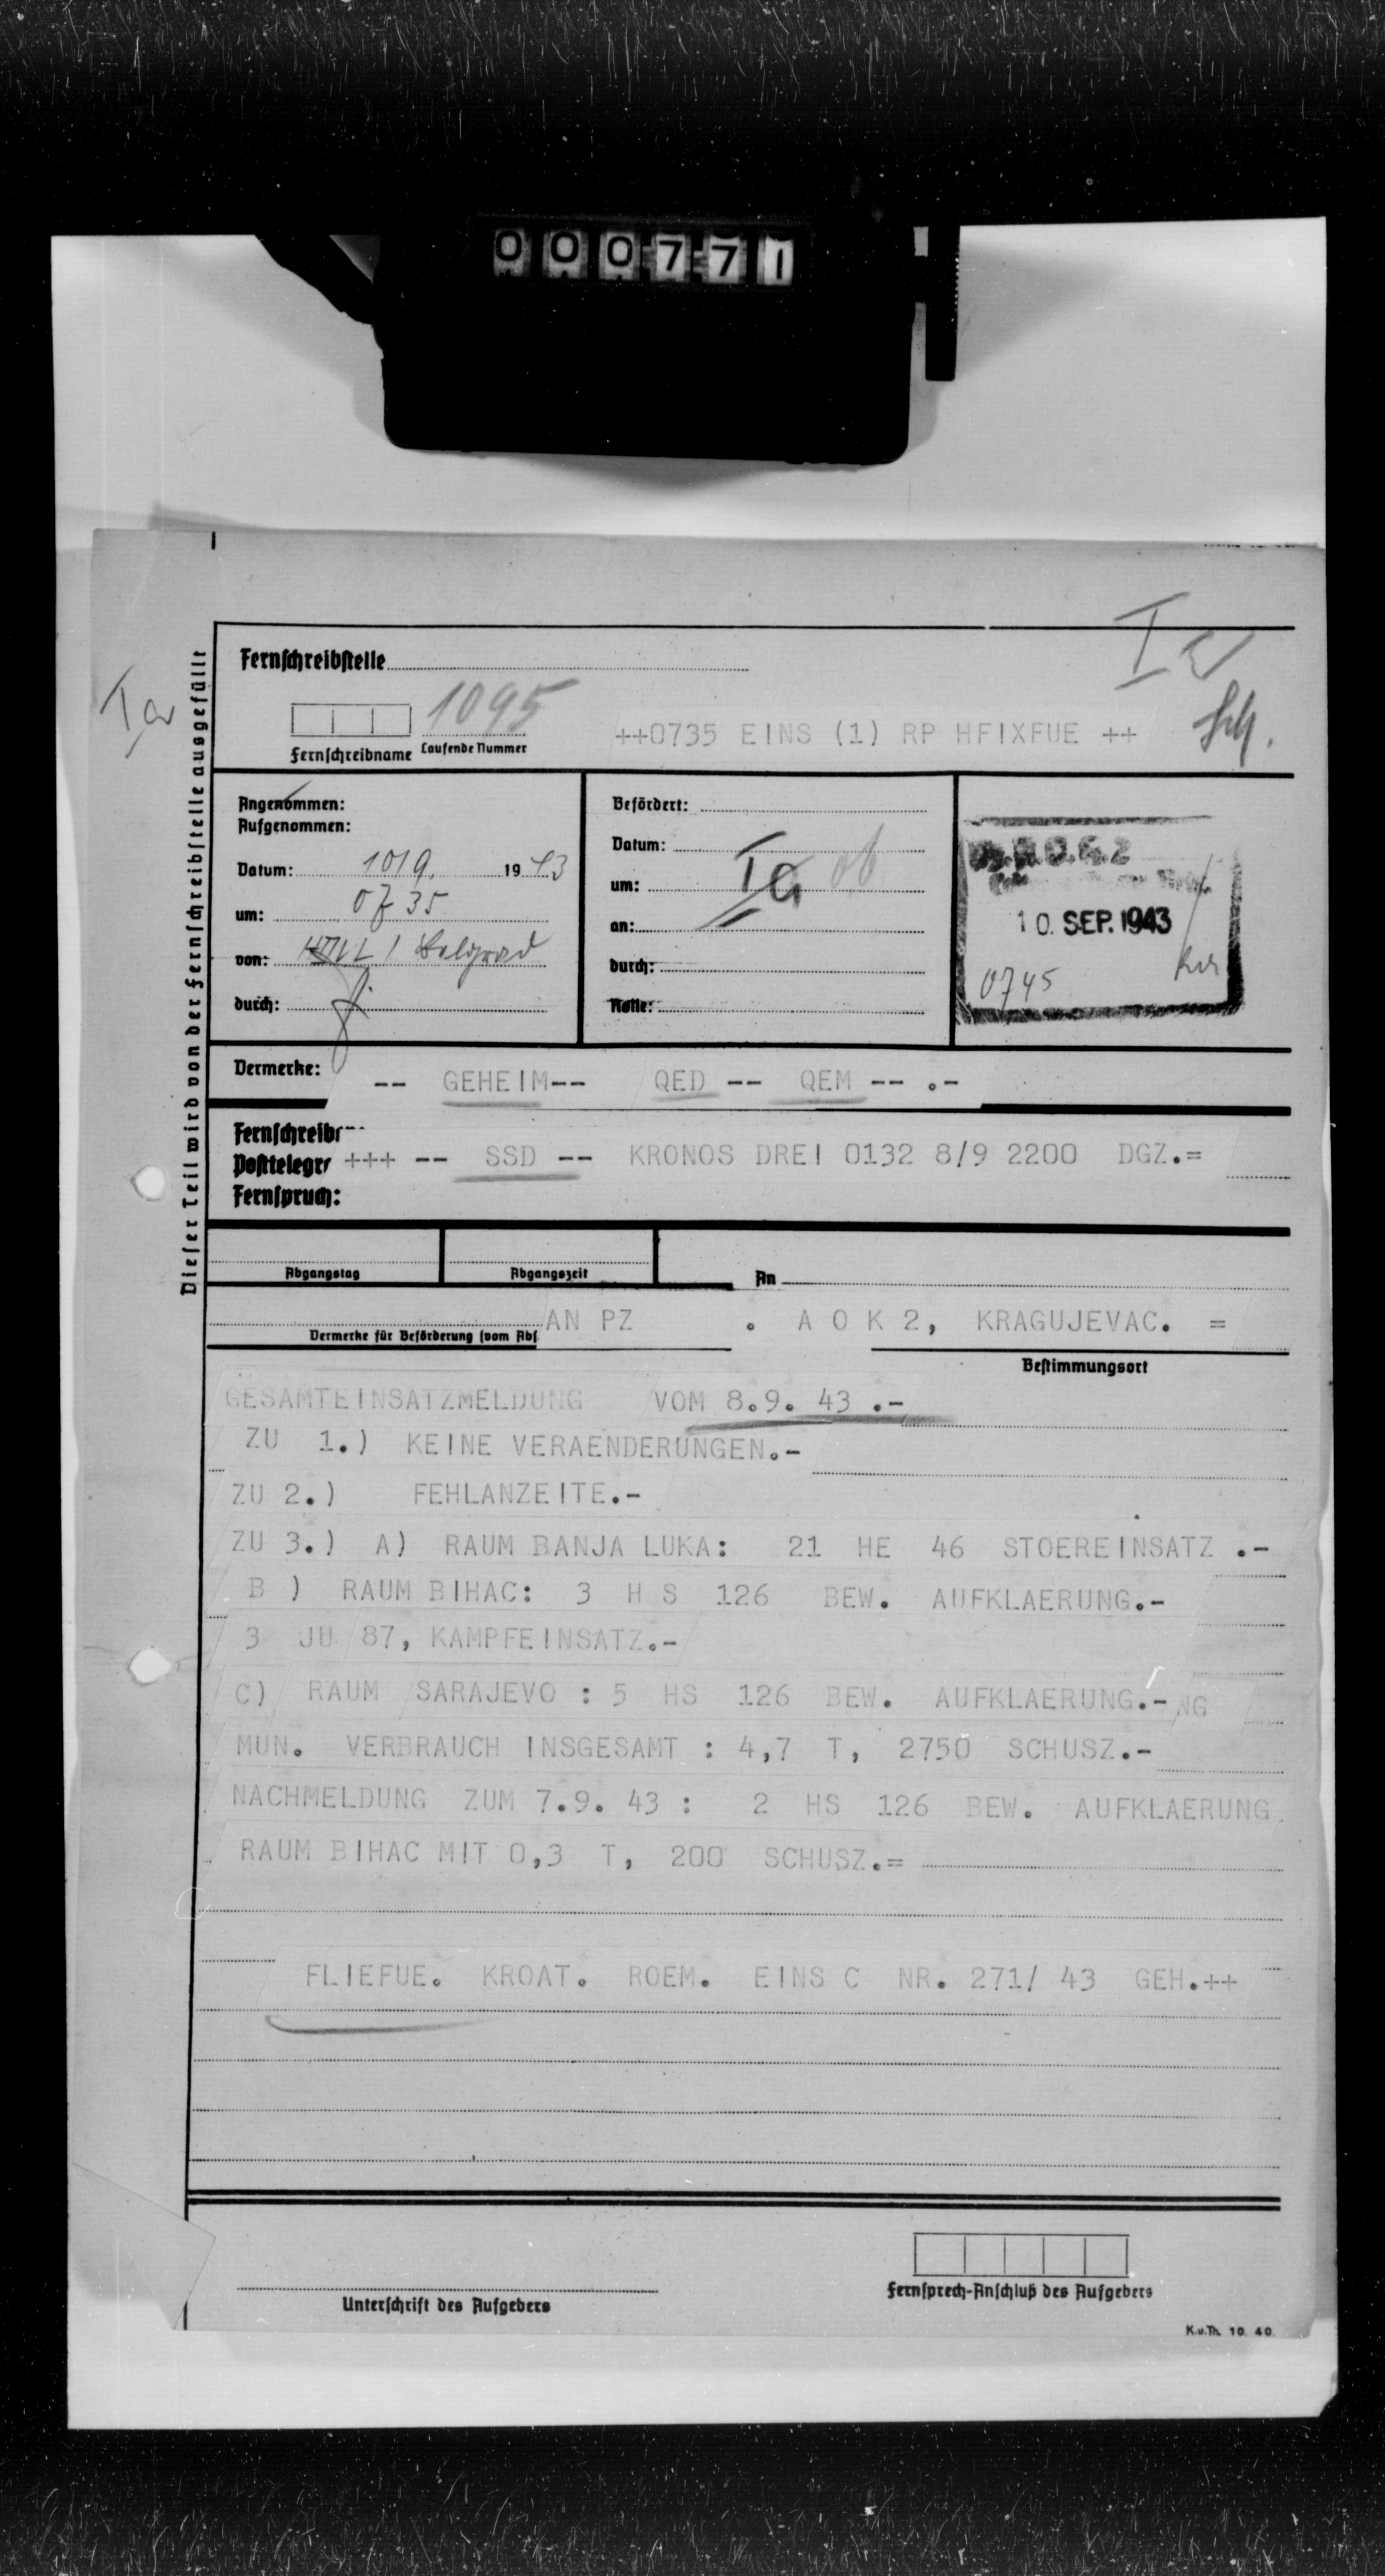 000771
I a
Fernschreibstelle
1095
Fernschreibname Laufende Nummer
++0735 EINS (1) RP HFIXFUE ++
Ia
Dieser Teil wird von der Fernschreibstelle ausgefüllt
Angenommen:
Aufgenommen:
Datum: 10/9. 19 43
um: 0735
von: Belgrad
durch:
Befördert:
Datum:
um:
an:
durch:
Rolle:
Ia
10. SEP. 1943
0745
Vermerke: -- GEHEIM-- QED -- QEM -- .-
Fernschreib
Posttelegr +++ -- SSD -- KRONOS DREI 0132 8/9 2200 DGZ.=
Fernspruch:
Abgangstag Abgangszeit An
AN PZ . A O K 2, KRAGUJEVAC. =
Vermerke für Beförderung (vom Abs
Bestimmungsort
GESAMTEINSATZMELDUNG VOM 8.9. 43 .-
ZU 1.) KEINE VERAENDERUNGEN.-
ZU 2.) FEHLANZEITE.-
ZU 3.) A) RAUM BANJA LUKA: 21 HE 46 STOEREINSATZ .-
B ) RAUM BIHAC: 3 H S 126 BEW. AUFKLAERUNG.-
3 JU 87, KAMPFEINSATZ.-
C) RAUM SARAJEVO : 5 HS 126 BEW. AUFKLAERUNG.- NG
MUN. VERBRAUCH INSGESAMT : 4,7 T, 2750 SCHUSZ.-
NACHMELDUNG ZUM 7.9. 43 : 2 HS 126 BEW. AUFKLAERUNG
RAUM BIHAC MIT 0,3 T, 200 SCHUSZ.=
FLIEFUE. KROAT. ROEM. EINS C NR. 271/ 43 GEH.++
Unterschrift des Aufgebers
Fernsprech-Anschluß des Aufgebers
K.u.Th. 10. 40.